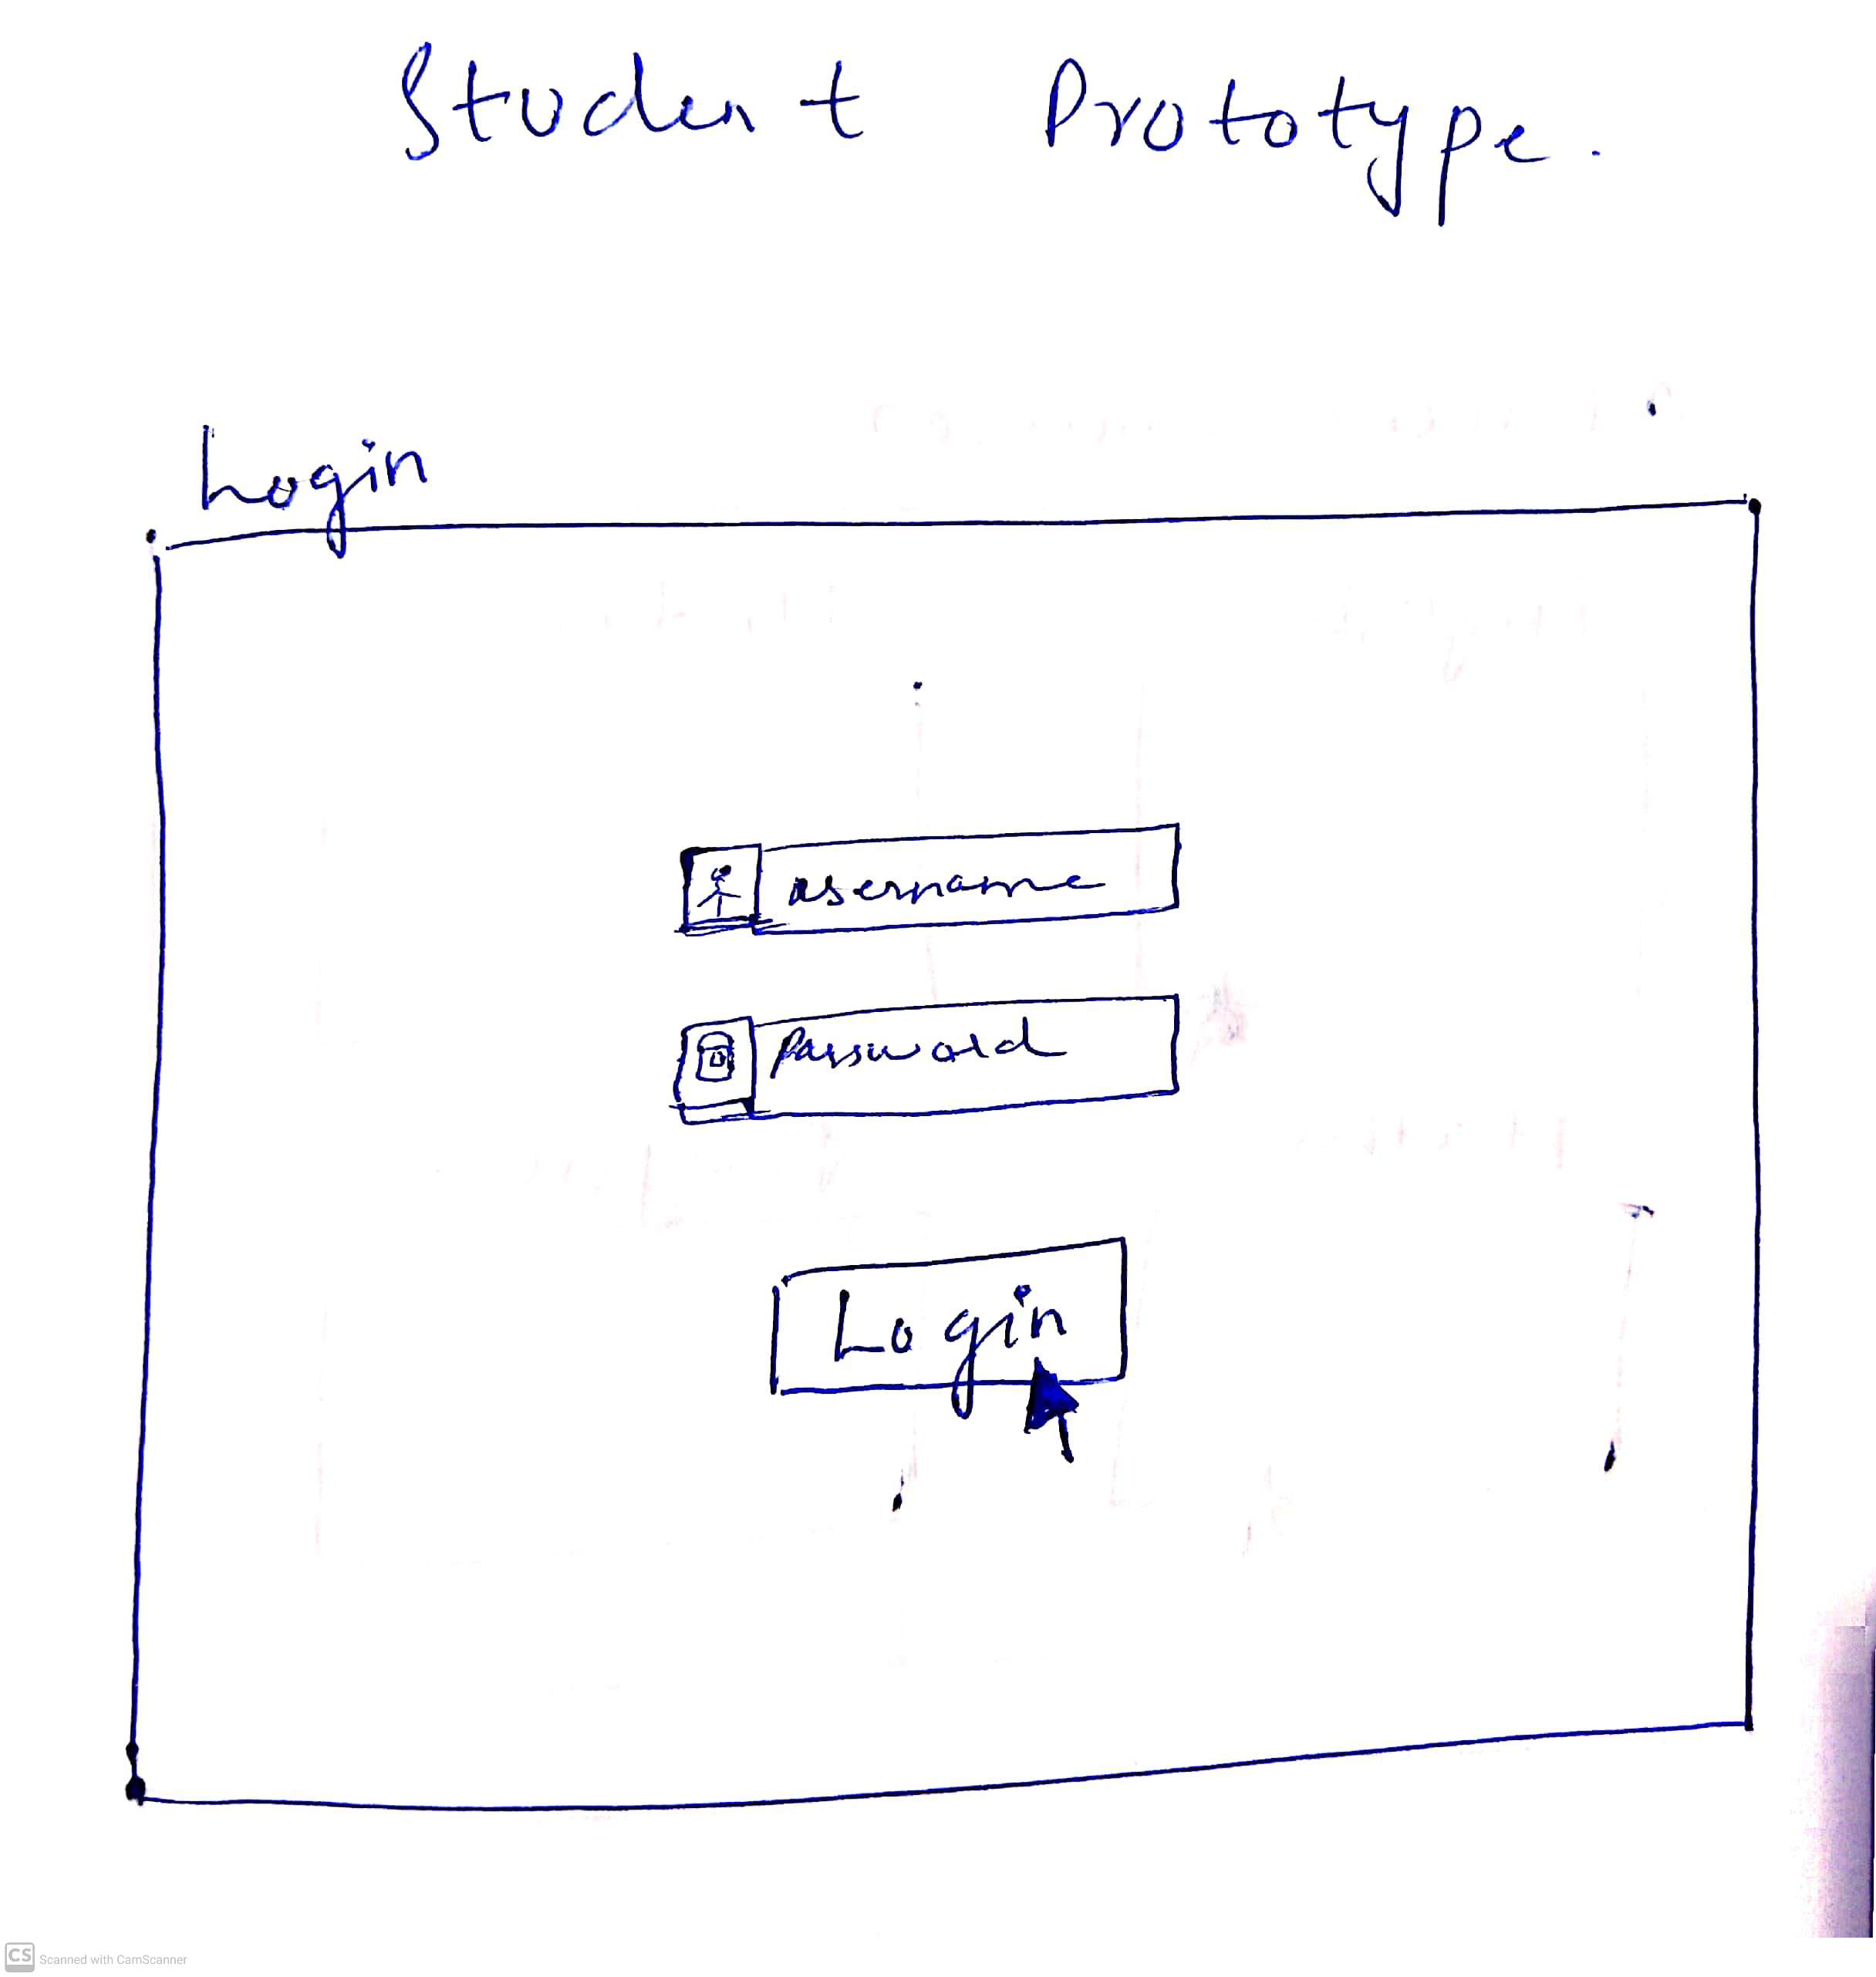 Student Prototype.
Login
username
Password
Login
CS Scanned with CamScanner